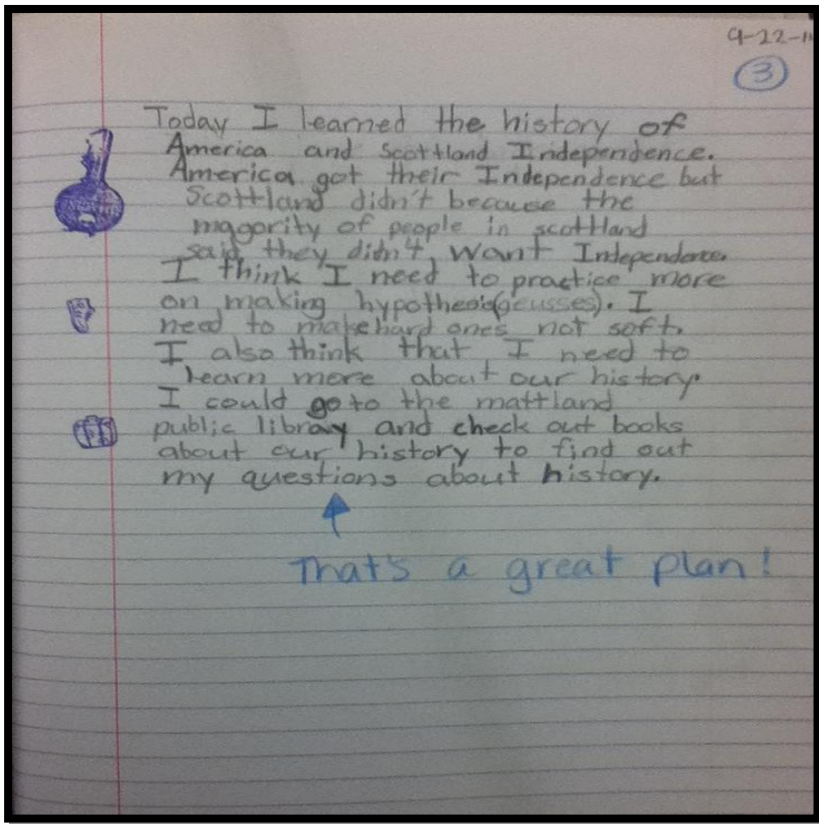 9-22-1
3
Today I learned the history of
America and Scottland Independence.
America got their Independence but
Scottland didn't because the
magority of people in scottland
said they didn't want Independence.
I think I need to practice more
on making (geusses). I
need to make hard ones not soft.
I also think that I need to
learn more about our history.
I could go to the mattland
public library and check out books
about our history to find out
my questions about history.
That's a great plan!